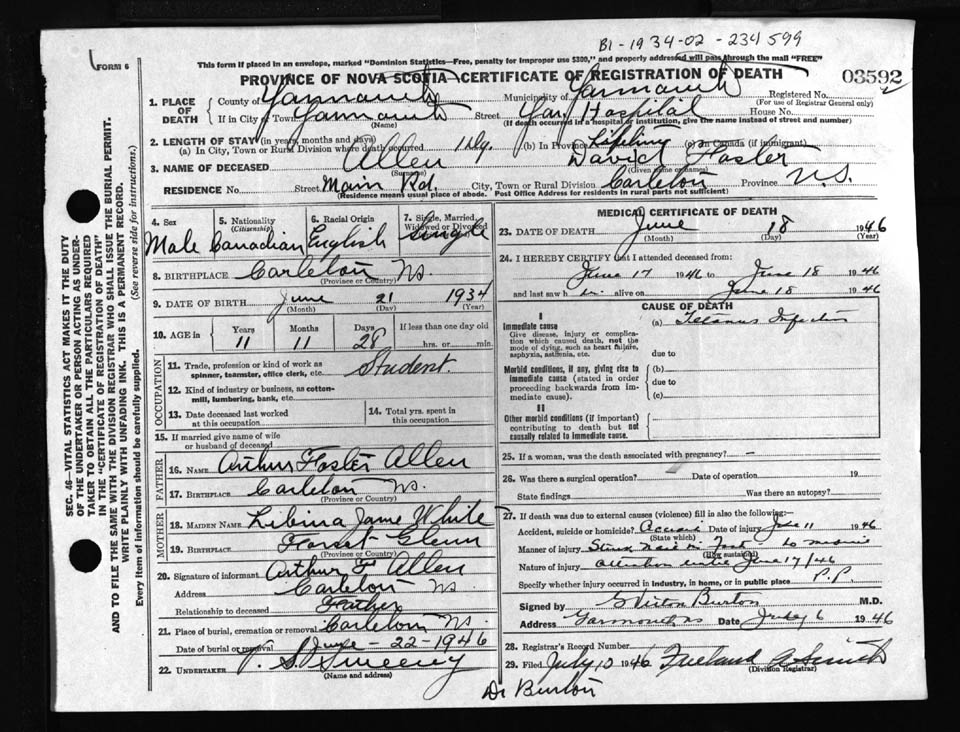 B1-1934-02-234599
FORM 6
This form if placed in an envelope, marked "Dominion Statistics—Free, penalty for improper use $300," and properly addressed will pass through the mail "FREE"
PROVINCE OF NOVA SCOTIA—CERTIFICATE OF REGISTRATION OF DEATH
03592
1. PLACE OF DEATH County of Yarmouth Municipality of Yarmouth Registered No.
(For use of Registrar General only)
If in City or Town Yarmouth Street Yar Hospital House No.
(Name) (If death occurred in a hospital or institution, give the name instead of street and number)
2. LENGTH OF STAY (in years, months and days)
(a) In City, Town or Rural Division where death occurred 1 Dy. (b) In Province Lifetime (c) In Canada (if immigrant)
3. NAME OF DECEASED Allen David Foster
(Surname) (Given name or names)
RESIDENCE No. Street Main Rd. City, Town or Rural Division Carleton Province N.S.
(Residence means usual place of abode. Post Office Address for residents in rural parts not sufficient)
SEC. 46—VITAL STATISTICS ACT MAKES IT THE DUTY
OF THE UNDERTAKER OR PERSON ACTING AS UNDER-
TAKER TO OBTAIN ALL THE PARTICULARS REQUIRED
IN THE "CERTIFICATE OF REGISTRATION OF DEATH"
AND TO FILE THE SAME WITH THE DIVISION REGISTRAR WHO SHALL ISSUE THE BURIAL PERMIT.
WRITE PLAINLY WITH UNFADING INK. THIS IS A PERMANENT RECORD.
Every item of information should be carefully supplied. (See reverse side for instructions.)
4. Sex 5. Nationality (Citizenship) 6. Racial Origin 7. Single, Married, Widowed or Divorced
Male Canadian English Single
8. BIRTHPLACE Carleton NS.
(Province or Country)
9. DATE OF BIRTH June 21 1934
(Month) (Day) (Year)
10. AGE in Years Months Days If less than one day old
11 11 28 hrs. or min.
OCCUPATION
11. Trade, profession or kind of work as
spinner, teamster, office clerk, etc. Student.
12. Kind of industry or business, as cotton-
mill, lumbering, bank, etc.
13. Date deceased last worked
at this occupation
14. Total yrs. spent in
this occupation
15. If married give name of wife
or husband of deceased
FATHER
16. NAME Arthur Foster Allen
17. BIRTHPLACE Carleton NS.
(Province or Country)
MOTHER
18. MAIDEN NAME Libina Jane White
19. BIRTHPLACE Forest Glenn
(Province or Country)
20. Signature of informant Arthur F Allen
Address Carleton NS
Relationship to deceased Father
21. Place of burial, cremation or removal Carleton NS.
Date of burial or removal June - 22 - 1946
22. UNDERTAKER V. S. Sweeny
(Name and address)
MEDICAL CERTIFICATE OF DEATH
23. DATE OF DEATH June 18 1946
(Month) (Day) (Year)
24. I HEREBY CERTIFY that I attended deceased from:
June 17 1946 to June 18 1946
and last saw him alive on June 18 1946
CAUSE OF DEATH
I
Immediate cause (a) Tetanus Infection
Give disease, injury or complica-
tion which caused death, not the
mode of dying, such as heart failure,
asphyxia, asthenia, etc.
due to
Morbid conditions, if any, giving rise to
immediate cause (stated in order
proceeding backwards from im-
mediate cause).
(b)
due to
(c)
II
Other morbid conditions (if important)
contributing to death but not
causally related to immediate cause.
25. If a woman, was the death associated with pregnancy? —
26. Was there a surgical operation? Date of operation 19
State findings Was there an autopsy?
27. If death was due to external causes (violence) fill in also the following:—
Accident, suicide or homicide? Accident Date of injury June 11 1946
(State which)
Manner of injury Struck Nail in Foot no medical
(How sustained)
Nature of injury attention until June 17/46
Specify whether injury occurred in industry, in home, or in public place P.P.
Signed by G Victor Burton M.D.
Address Yarmouth, NS Date July 6 1946
28. Registrar's Record Number
29. Filed July 10 1946 Freeland A Smith
(Division Registrar)
Dr Burton